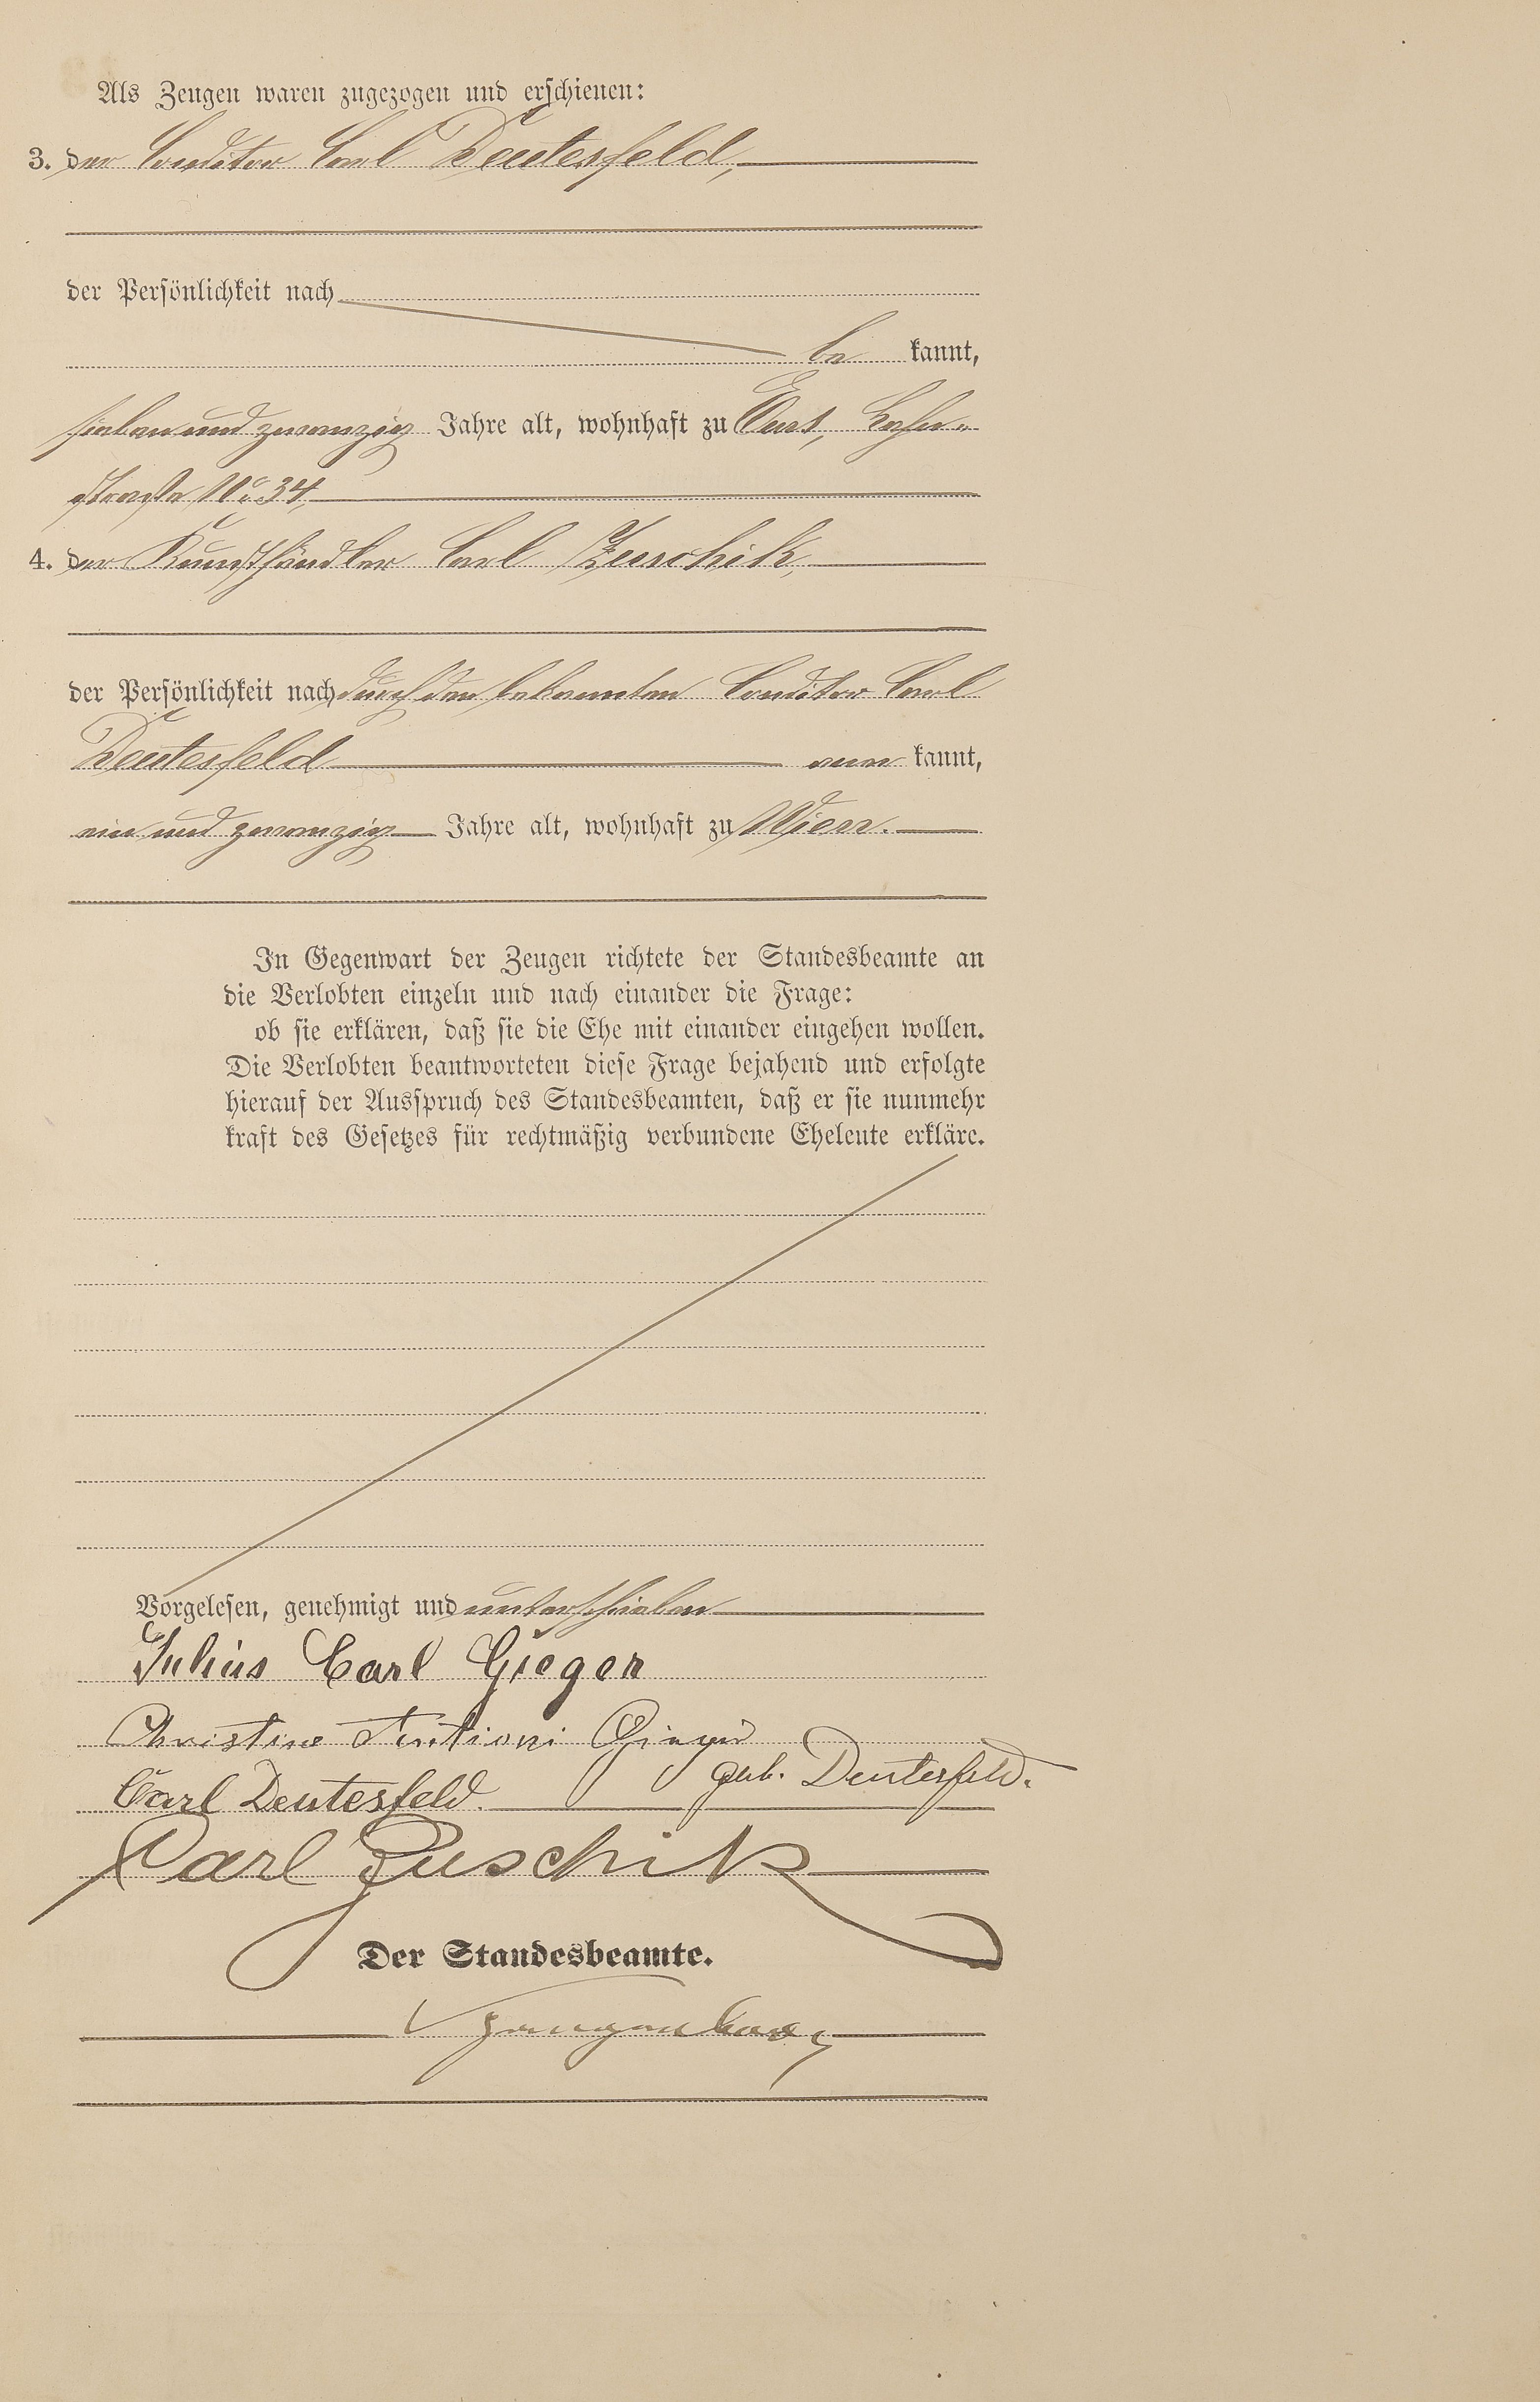 Als Zeugen waren zugezogen und erschienen:
3. der Conditor Carl Deutesfeld,
der Persönlichkeit nach
be kannt,
sieben und zwanzig Jahre alt, wohnhaft zu Ems, Lahn-
straße No 34,
4. der Kunsthändler Carl Zuschik,
der Persönlichkeit nach durch den bekannten Conditor Carl
Deutesfeld aner kannt,
ein und zwanzig Jahre alt, wohnhaft zu Wien.
In Gegenwart der Zeugen richtete der Standesbeamte an
die Verlobten einzeln und nach einander die Frage:
ob sie erklären, daß sie die Ehe mit einander eingehen wollen.
Die Verlobten beantworteten diese Frage bejahend und erfolgte
hierauf der Ausspruch des Standesbeamten, daß er sie nunmehr
kraft des Gesetzes für rechtmäßig verbundene Eheleute erkläre.
Vorgelesen, genehmigt und unterschrieben
Julius Carl Gieger
Christine Gieger
geb. Deutesfeld.
Carl Deutesfeld.
Carl Zuschik
Der Standesbeamte.